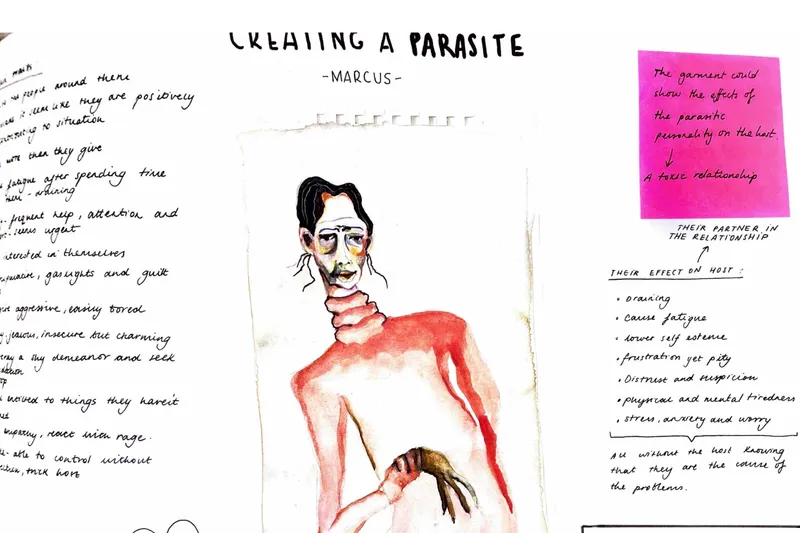 CREATING A PARASITE
-MARCUS-
people around them
seem like they are positively
to situation
then they give
fatigue after spending time
draining
frequent help, attention and
seems urgent
interested in themselves
gaslights and guilt
aggressive, easily bored
jealous, insecure but charming
a shy demeanor and seek
to things they haven't
empathy, react with rage.
able to control without
host
The garment could
show the effects of
the parasitic
personality on the host.
A toxic relationship
THEIR PARTNER IN
THE RELATIONSHIP
THEIR EFFECT ON HOST :
• Draining
• cause fatigue
• lower self esteme
• frustration yet pity
• Distrust and suspicion
• physical and mental tiredness
• stress, anxiety and worry
All without the host knowing
that they are the cause of
the problems.